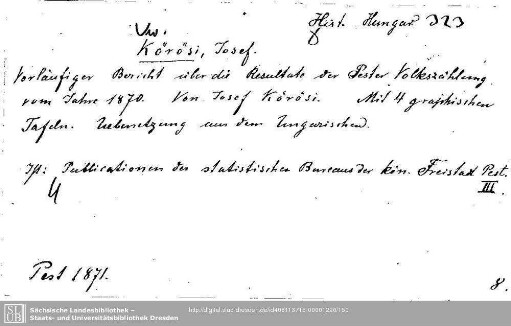 Hist. Hungar 323
Vw.
Körösi, Josef.
Vorläufiger Bericht über die Resultate der Pester Volkszählung
vom Jahre 1870. Von Josef Körösi. Mit 4 graphischen
Tafeln. Uebersetzung aus dem Ungarischen.
Ist: Publicationen des statistischen Bureaus der kön. Freistadt Pest.
III.
4
Pest 1871.
8.
SLUB
Sächsische Landesbibliothek –
Staats- und Universitätsbibliothek Dresden